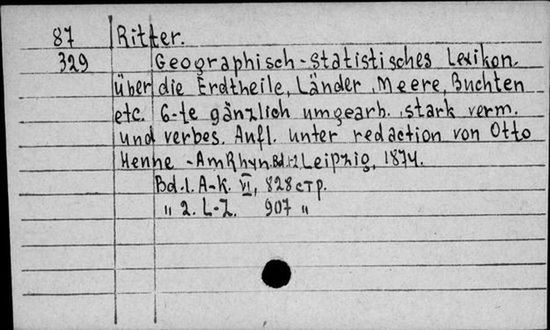 87 Ritter.
329 Geographisch-Statistisches Lexikon
über die Erdtheile, Länder, Meere, Buchten
etc. 6-te gänzlich umgearb., stark verm.
und verbes. Aufl. unter redaction von Otto
Henne - AmRhyn. Bd. 1-2 Leipzig, 1874.
Bd. 1. A-K. VI, 828 стр.
" 2. L-Z. 907 "